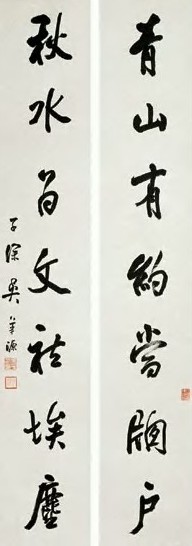 青山有約當牖户
秋水文祛埃塵
子深吳華源